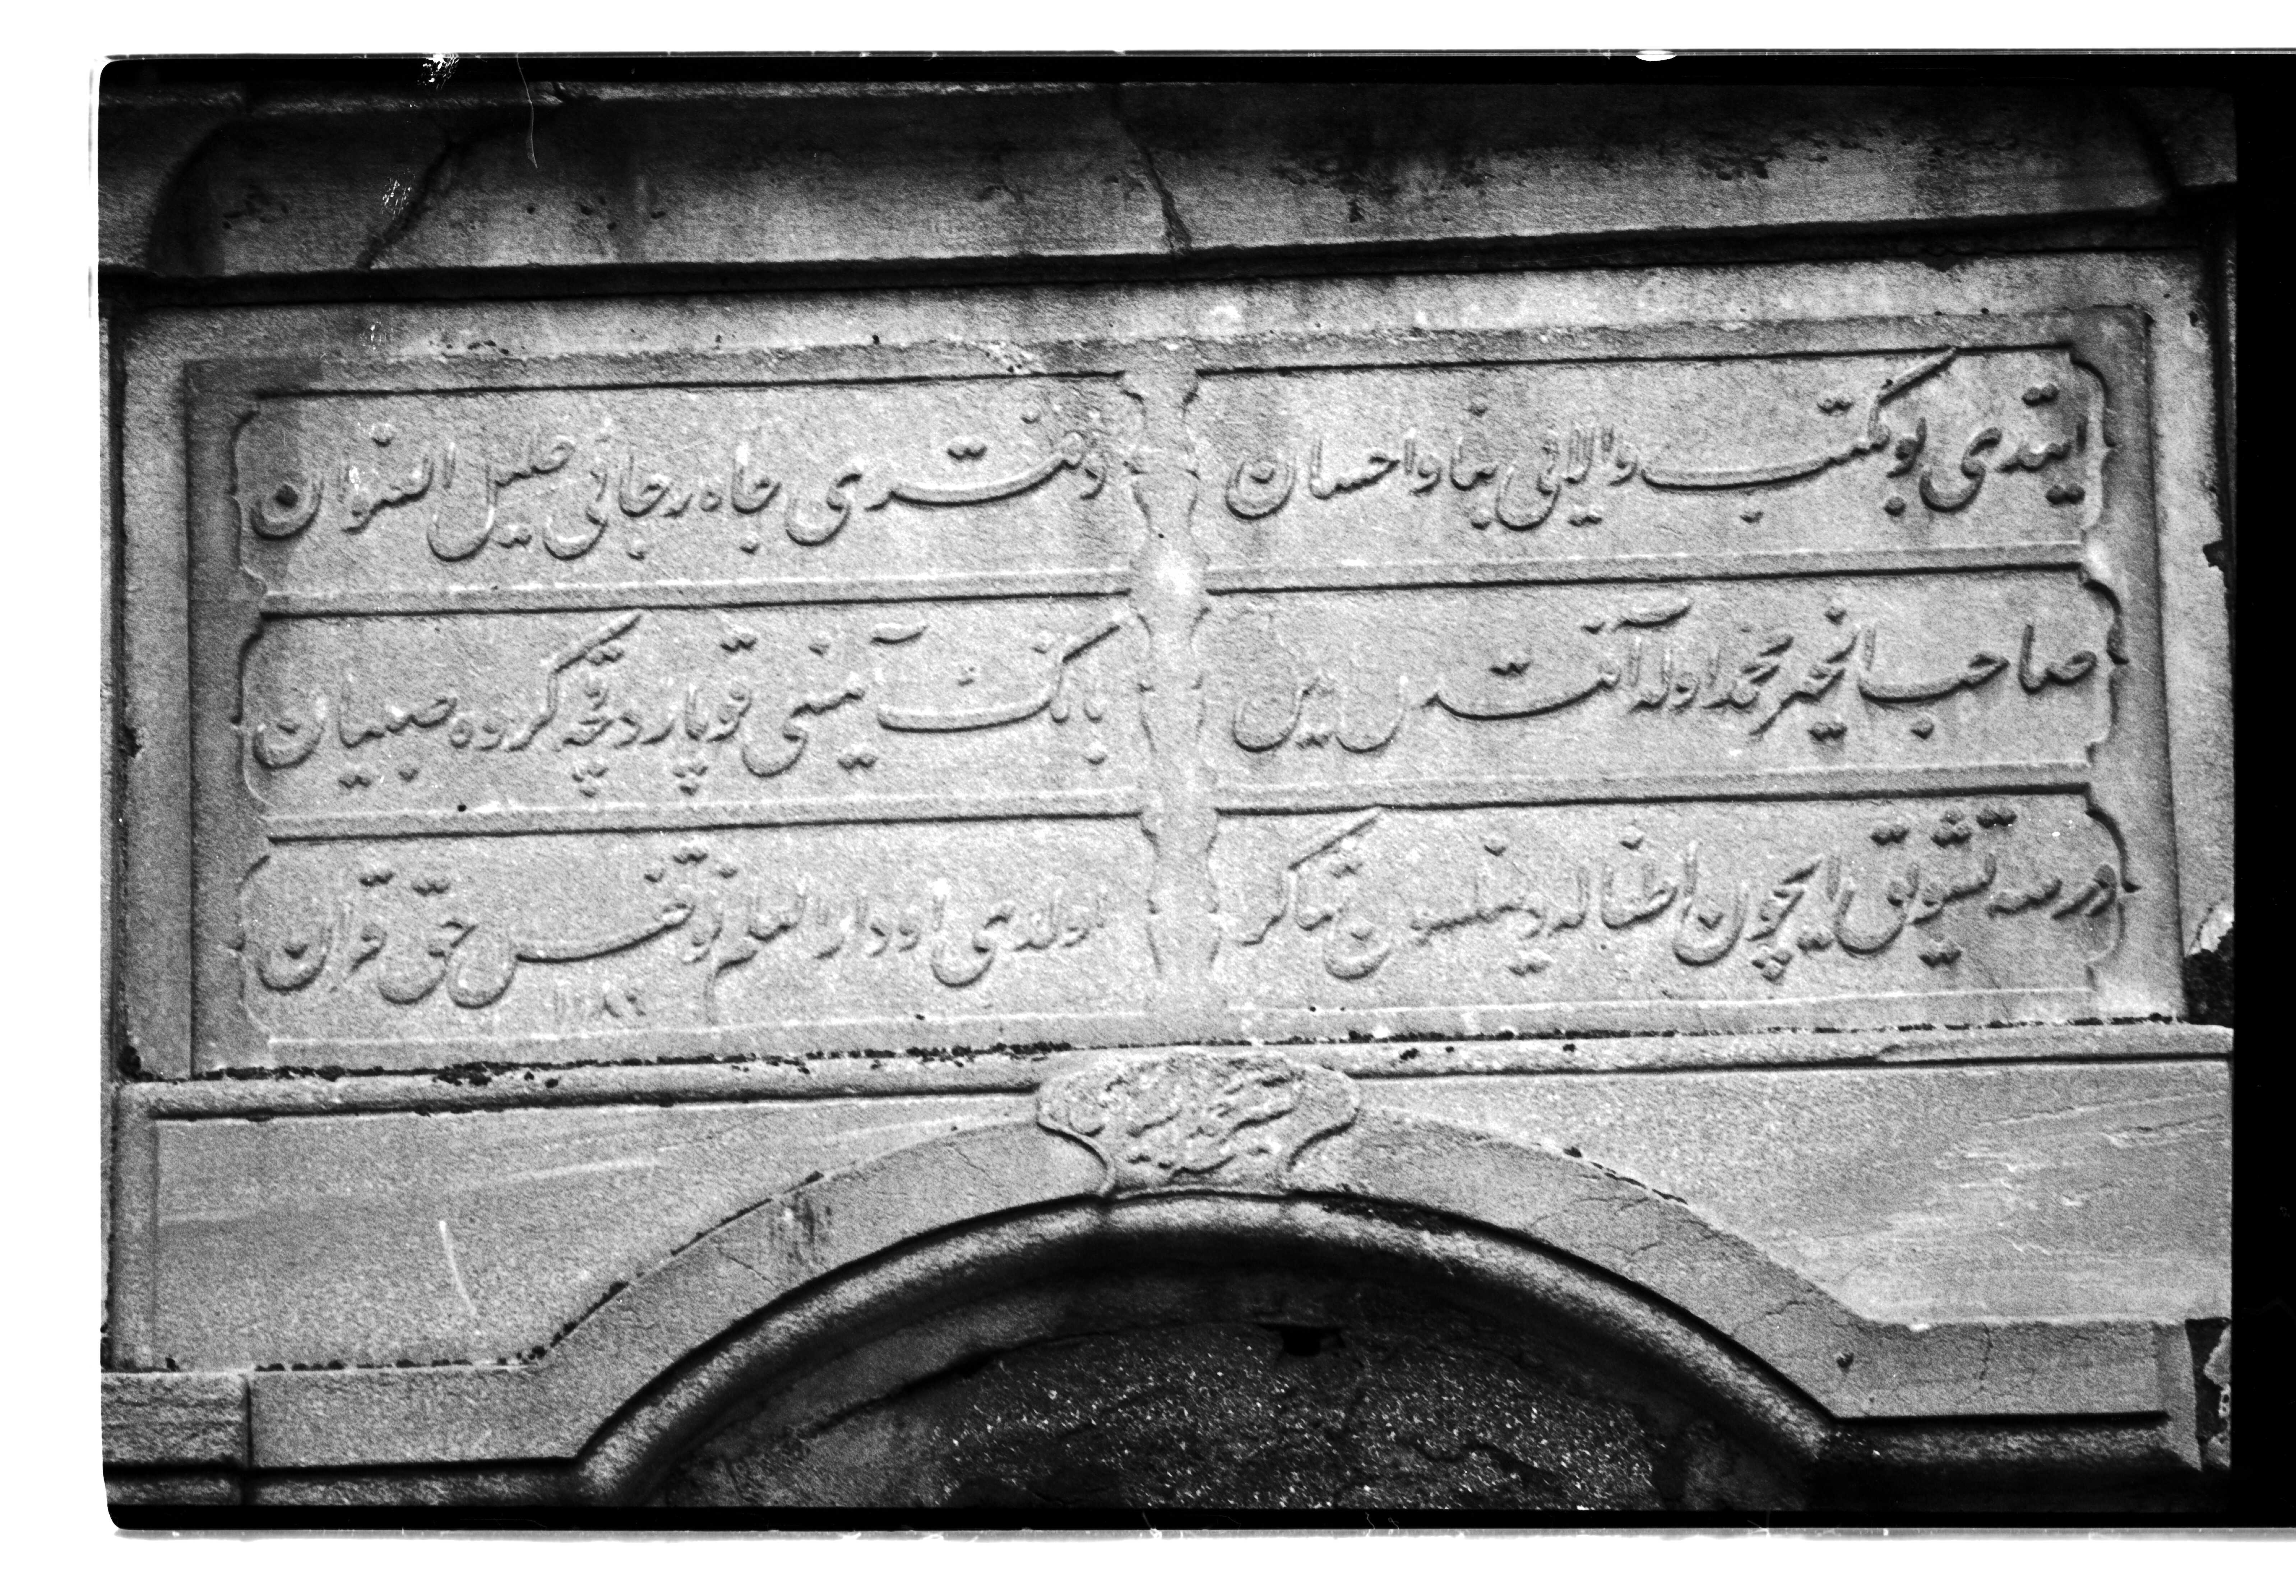 ایتدی بو مكتب والایی بنا و احسان
دفتری جاه رجائی جلیل العنوان
صاحب الخیر محمد اوله آفتدن امین
بانك آمینی قوپاردقچه گروه صبیان
درسه تشویق ایچون اطفاله دینلسون تا كر
اولدی او دار العلم نو قفس حق قرآن
١١٨٩